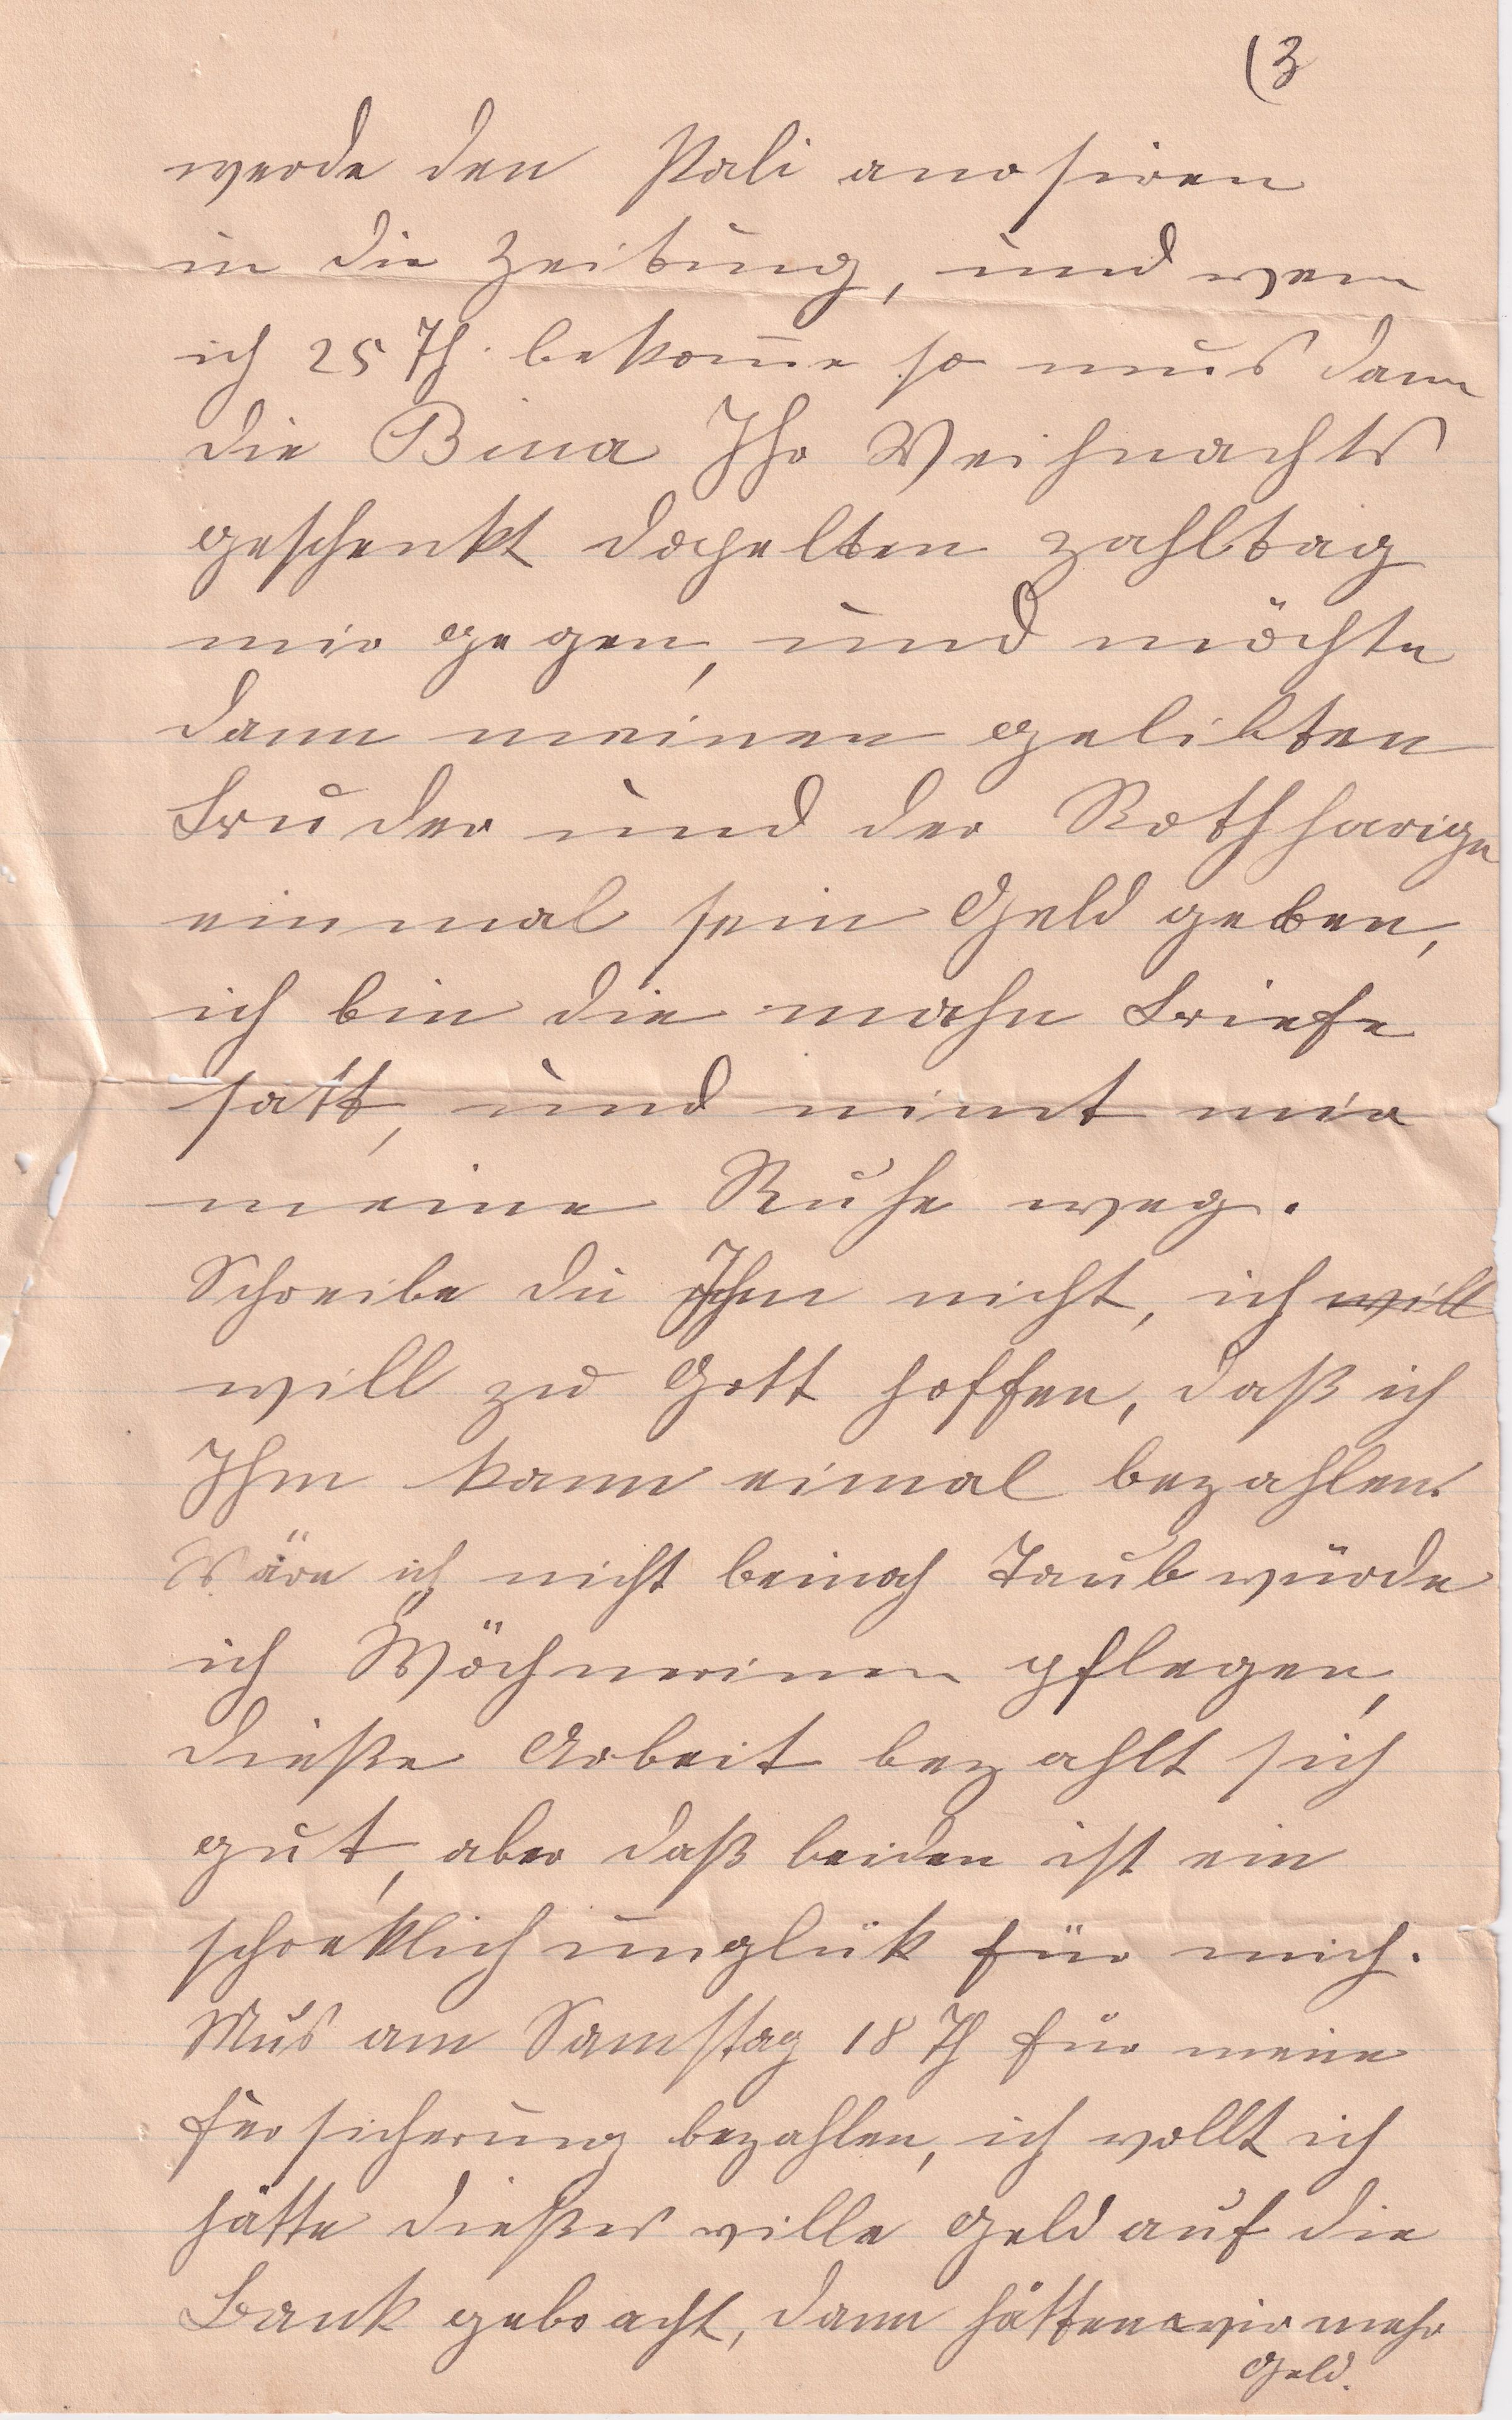 (3
werde den Pali anosiren
in die Zeitung, und wen
ich 25 Th. bekom̅e so mus dann
die Bina Ihr Weihnachts
geschenkt dopelten zahltag
mir gegen, und möchte
dann meinen gelibten
Bruder und der Rothharige
einmal sein Geld geben,
ich bin die mahn Briefe
satt, und nimt mir
meine Ruhe weg.
Schreibe du Ihm nicht, ich will
will zu Gott hoffen, daß ich
Ihm kann eimal bezahlen.
Wäre ich nicht beinah Taub würde
ich Wöchnerinen pflegen,
dieße Arbeit bezahlt sich
gut, aber daß beiden ist ein
schreklich unglük für mich.
Mus am Samstag 18 Th für meine
fersicherung bezahlen, ich wollt ich
hätte dießes ville Geld auf die
Bank gebracht, dann hätten wir mehr
Geld.